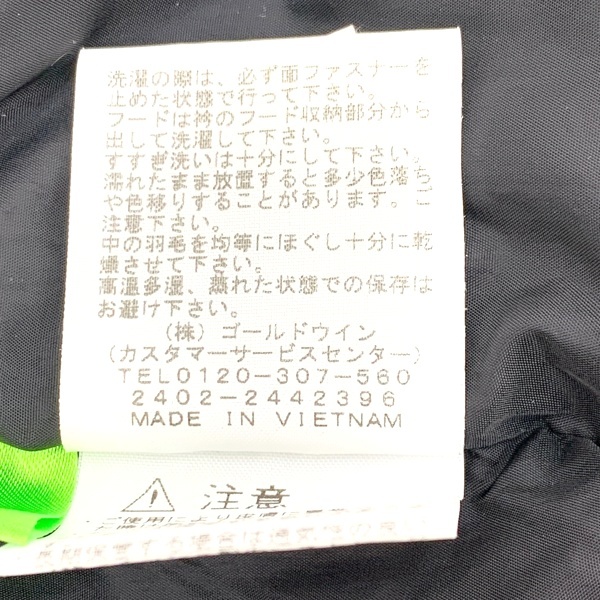 洗濯の際は、必ず面ファスナーを
止めた状態で行って下さい。
フードは衿のフード収納部分から
出して洗濯して下さい。
すすぎ洗いは十分にして下さい。
濡れたまま放置すると多少色落ち
や色移りすることがあります。ご
注意下さい。
中の羽毛を均等にほぐし十分に乾
燥させて下さい。
高温多湿、蒸れた状態での保存は
お避け下さい。
(株) ゴールドウイン
(カスタマーサービスセンター)
TEL0120-307-560
2402-2442396
MADE IN VIETNAM
注意
ご使用により